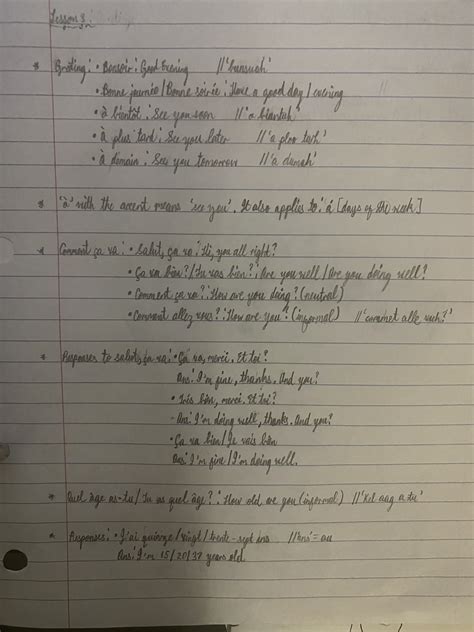 Lesson 3:
* Greeting: • Bonsoir: Good Evening // 'bunsuah'
• Bonne journée / Bonne soirée: Have a good day / evening
• à biantôt: See you soon // 'a biantuh'
• à plus tard: See you later // 'a ploo tarh'
• à demain: See you tomorrow // 'a dumah'
* 'à' with the accent means 'see you'. It also applies to: à [days of the week]
* Comment ça va: • Salut, ça va: Hi, you all right?
• Ça va bien? / Tu vas bien?: Are you well / Are you doing well?
• Comment ça va?: How are you doing? (neutral)
• Comment allez vous?: How are you? (informal) // 'commet alle vuh?'
* Responses to salut, ça va: • Ça va, merci. Et toi?
Ans: I'm fine, thanks. And you?
• Très bien, merci. Et toi?
- Ans: I'm doing well, thanks. And you?
• Ça va bien / Je vais bien
Ans: I'm fine / I'm doing well.
* Quel âge as-tu / Tu as quel âge?: How old are you (informal) // 'Kel aag a tu'
* Responses: • J'ai quinze / vingt / trente-sept ans // 'ans' = au
Ans: I'm 15/20/37 years old